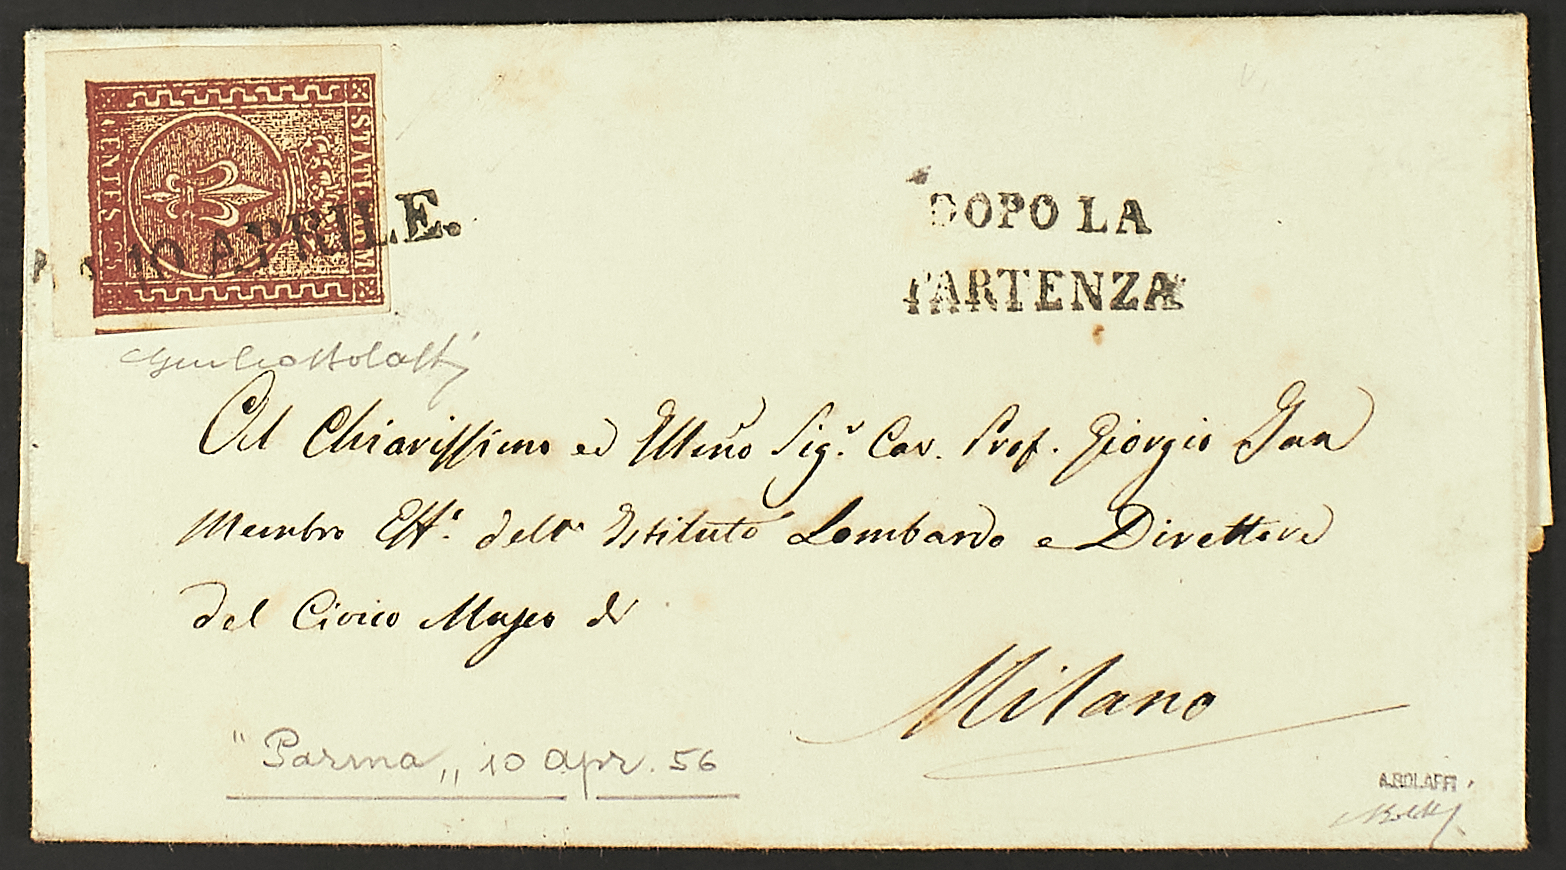 STATI PARM
CENTES. 25
10 APRILE.
DOPO LA
PARTENZA
Giulio Bolaffi
Al Chiarissimo ed Illmo Sigr. Cav. Prof. Giorgio Jan
Membro Effo. dell' Istituto Lombardo e Direttore
del Civico Museo di
Milano
"Parma" 10 apr. 56
A. BOLAFFI